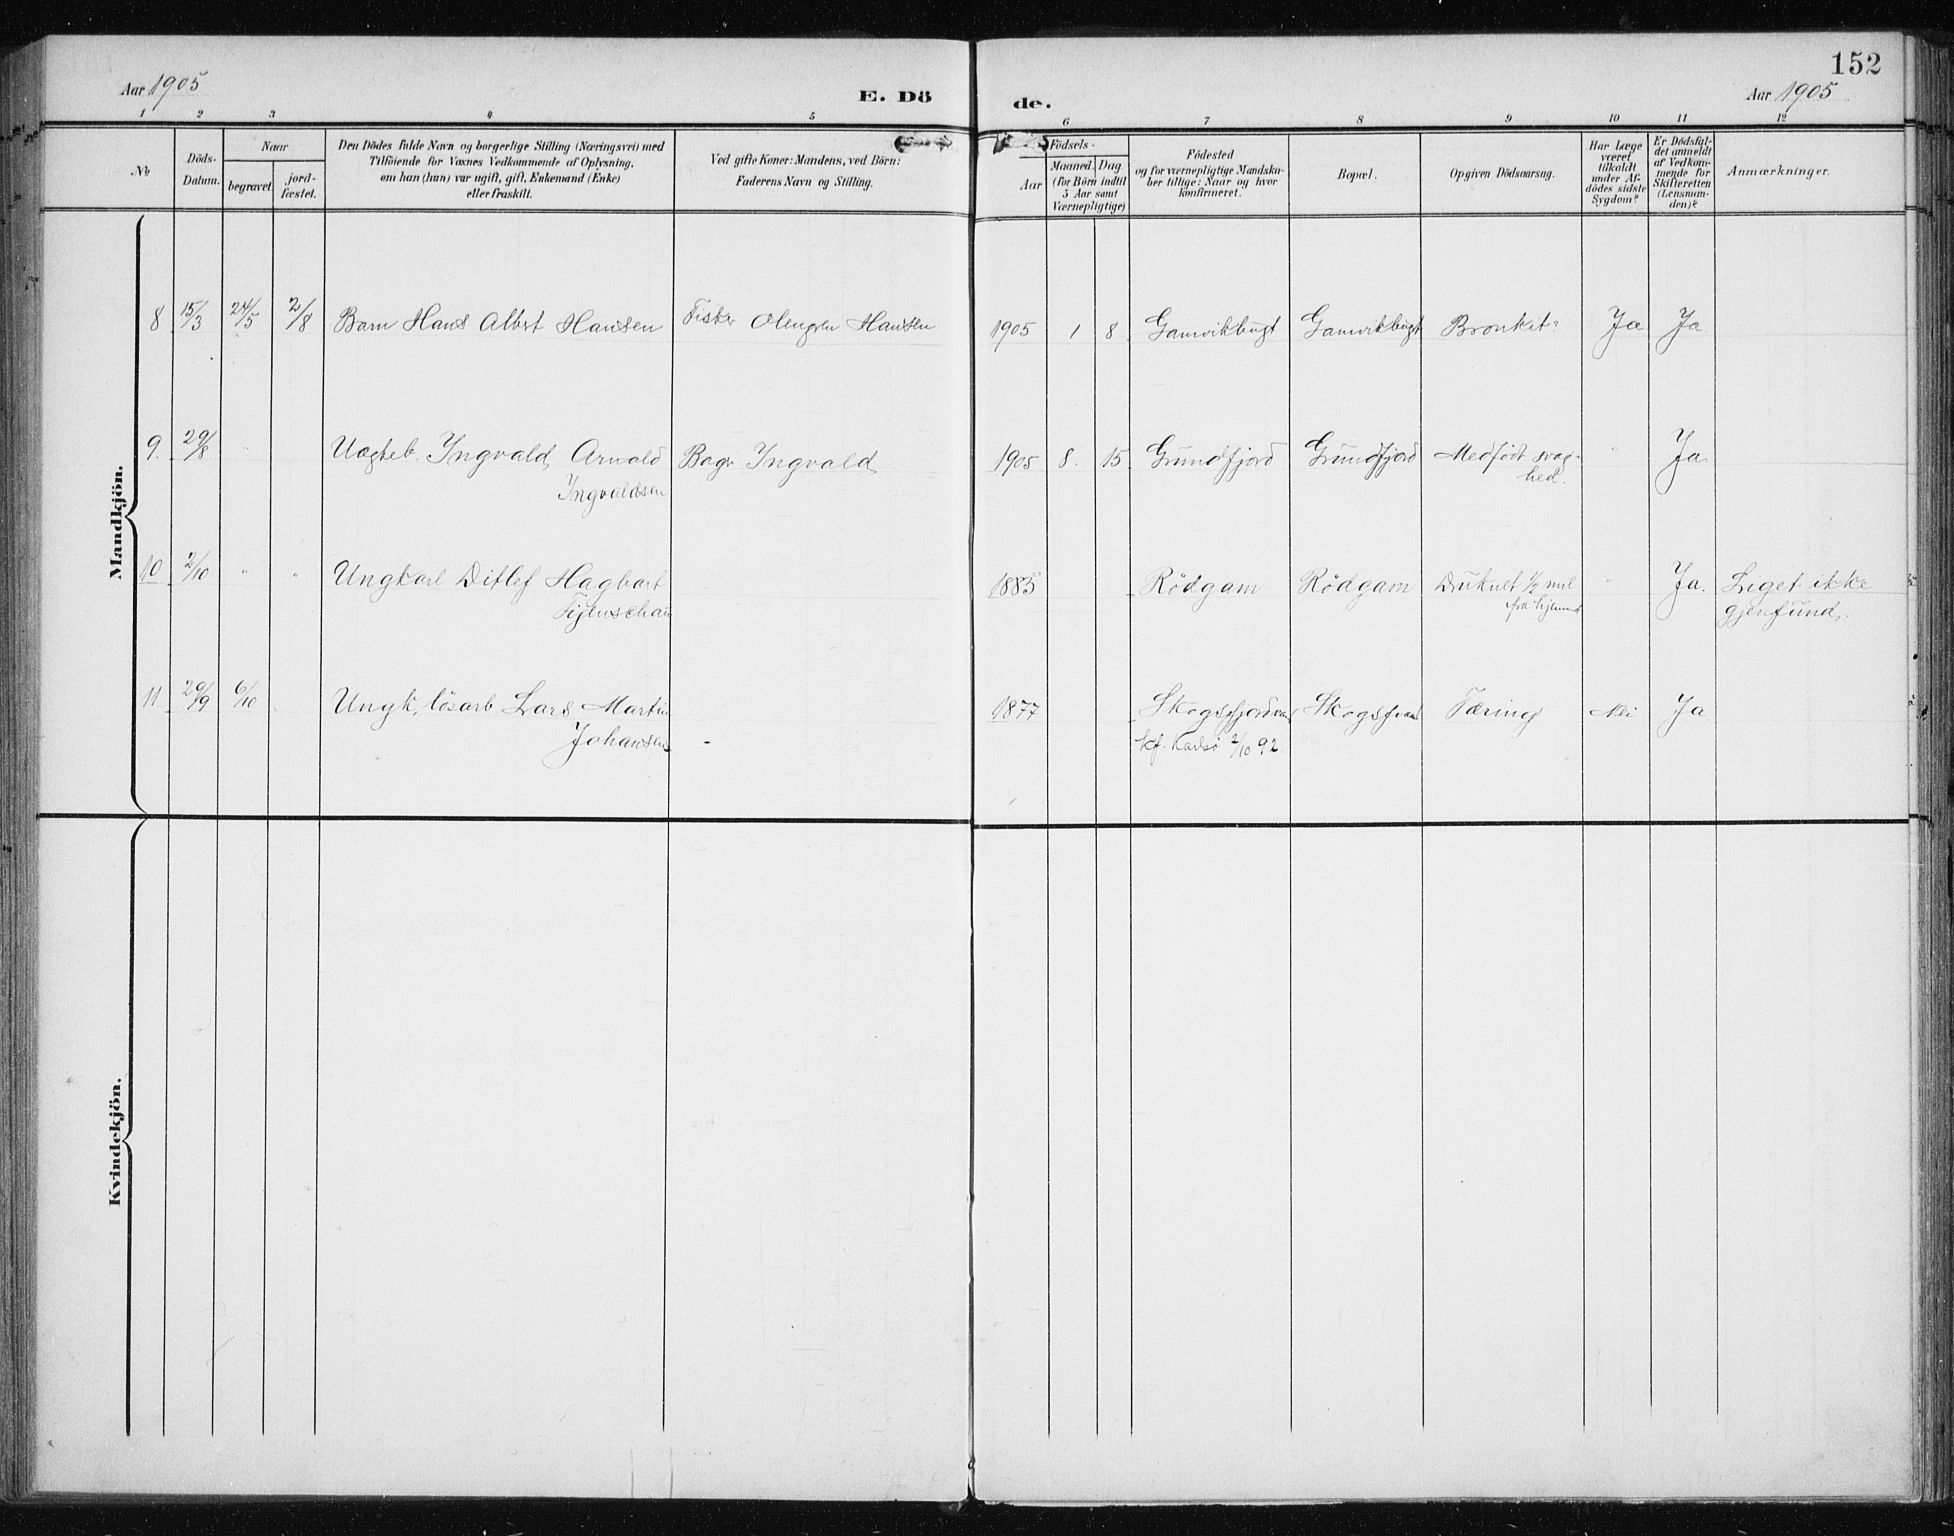 152
Aar 1905
E. Dö
de.
Aar 1905
1 2 3 4 5 6 7 8 9 10 11 12
No
Döds-
Datum.
Naar
begravet.
jord-
fæstet.
Den Dödes fulde Navn og borgerlige Stilling (Næringsvei) med
Tilföiende for Voxnes Vedkommende af Oplysning,
om han (hun) var ugift, gift, Enkemand (Enke)
eller fraskilt.
Ved gifte Koner: Mandens, ved Börn:
Faderens Navn og Stilling.
Födsels-
Aar
Maaned. Dag.
(for Börn indtil
5 Aar samt
Værnepligtige)
Födested
og for værnepligtige Mandska-
ber tillige: Naar og hvor
konfirmeret.
Bopæl.
Opgiven Dödsaarsag.
Har Læge
været
tilkaldt
under Af-
dödes sidste
Sygdom?
Er Dödsfal-
det anmeldt
af Vedkom-
mende for
Skifteretten
(Lensman-
den)?
Anmærkninger.
Mandkjön.
8 15/3 24/5 2/8 Barn Hans Albert Hansen Fisker Hansen 1905 1 8 Gamvikbugt Gamvikbugt Bronkit Ja Ja
9. 29/8 " Uægteb. Ingvald Arnold Ingvald 1905 8. 15 Grundfjord Grundfjord Medfödt svag- " Ja.
Ingvaldsen hed.
10 2/10 " " Ungkarl Ditlef Hagbart 1885 Rödgam Rödgam Druknet 1/2 mil " Ja. Liget ikke
fra hjemmet gjenfund.
11 29/9 6/10 Ungk. lösarb Lars Martin 1877 Færing Nei Ja
Johansen - kf. Karlsö 2/10 92.
Kvindekjön.